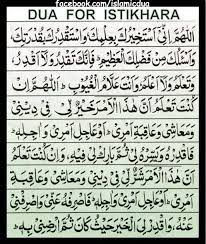 facebook.com/islamicdua
DUA FOR ISTIKHARA
اَللّٰهُمَّ اِنِّیْ اَسْتَخِیْرُكَ بِعِلْمِكَ وَاَسْتَقْدِرُكَ بِقُدْرَتِكَ
وَاَسْئَلُكَ مِنْ فَضْلِكَ الْعَظِیْمِ فَاِنَّكَ تَقْدِرُ وَلَا اَقْدِرُ
وَتَعْلَمُ وَلَا اَعْلَمُ وَاَنْتَ عَلَّامُ الْغُیُوْبِ اَللّٰهُمَّ اِنْ
تَعْلَمُ اَنَّ هٰذَا الْاَمْرَ خَیْرٌ لِّیْ فِیْ دِیْنِیْ
وَمَعَاشِیْ وَعَاقِبَةِ اَمْرِیْ اَوْ عَاجِلِ اَمْرِیْ وَاٰجِلِهٖ
فَاقْدِرْهُ وَیَسِّرْهُ لِیْ ثُمَّ بَارِكْ لِیْ فِیْهِ وَاِنْ كُنْتَ تَعْلَمُ
اَنَّ هٰذَا الْاَمْرَ شَرٌّ لِّیْ فِیْ دِیْنِیْ وَمَعَاشِیْ وَعَاقِبَةِ
اَمْرِیْ اَوْ عَاجِلِ اَمْرِیْ وَاٰجِلِهٖ فَاصْرِفْهُ عَنِّیْ وَاصْرِفْنِیْ
عَنْهُ وَاقْدِرْ لِیَ الْخَیْرَ حَیْثُ كَانَ ثُمَّ اَرْضِنِیْ بِهٖ